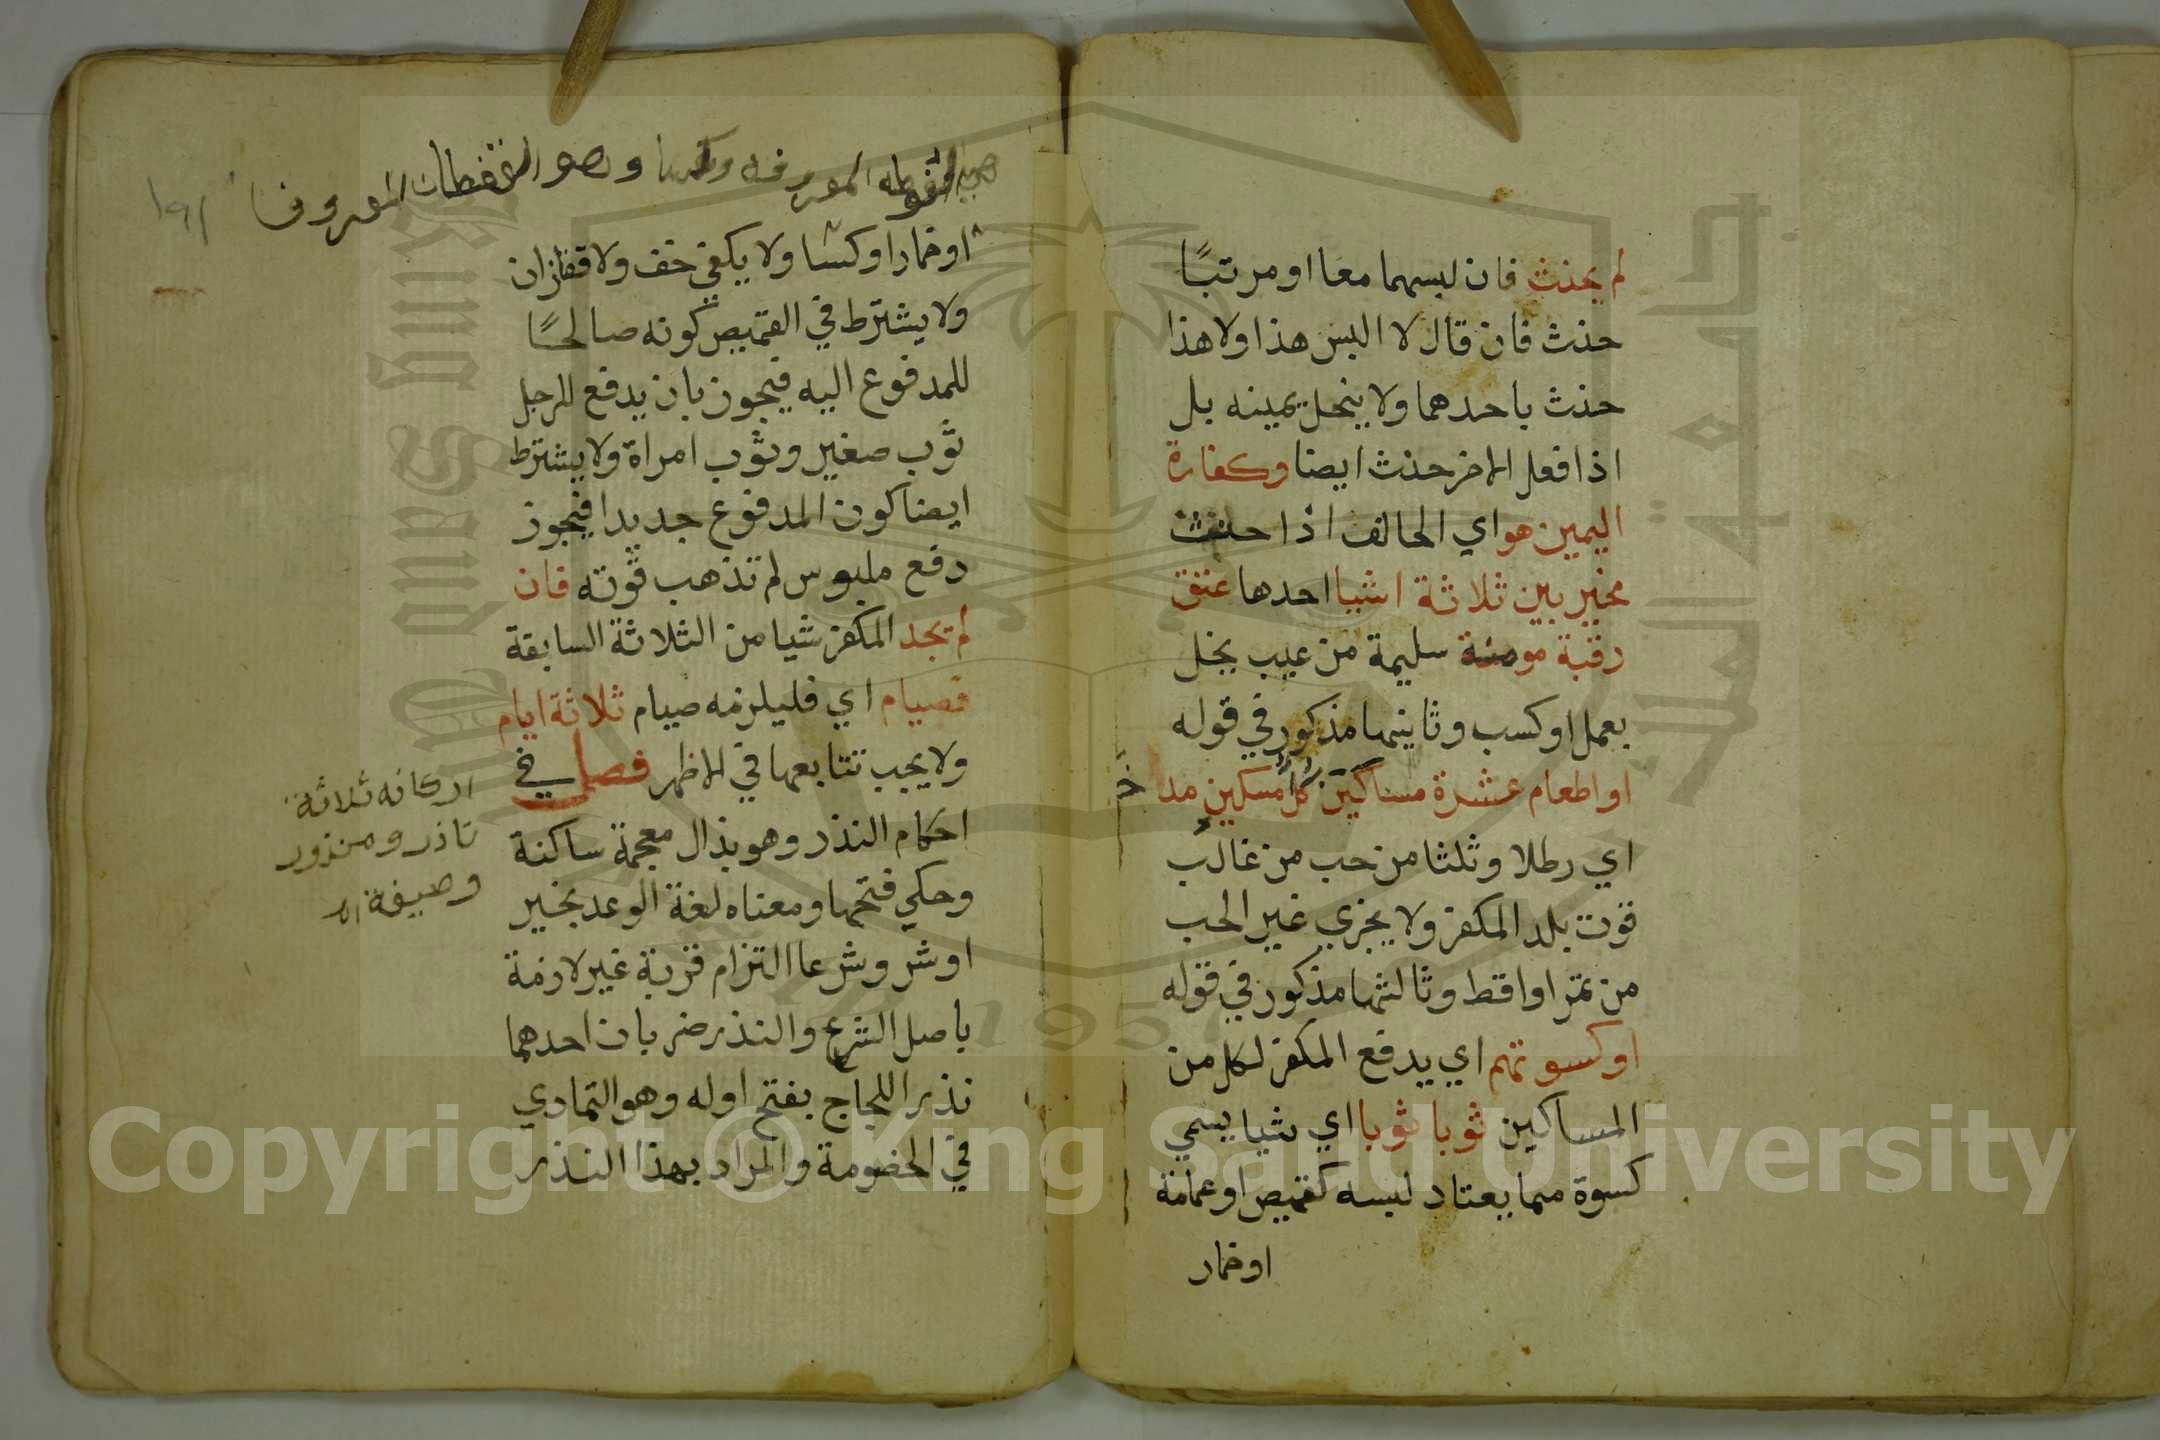 لم يحنث فان لبسهما معا او مرتبًا
حنث فان قال لا البس هذا ولا هذا
حنث باحدهما ولا ينحل يمينه بل
اذا فعل الاخر حنث ايضا وكفارة
اليمين هو اي الحالف اذا حنث
مخير بين ثلاثة اشيا احدها عتق
رقبة مومنة سليمة من عيب يخل
بعمل او كسب وثانيها مذكور في قوله
او اطعام عشرة مساكين كل مسكين مدا
اي رطلا وثلثا من حب من غالب
قوت بلد المكفر ولا يجزي غير الحب
من تمر او اقط وثالثها مذكور في قوله
او كسوتهم اي يدفع المكفر لكل من
المساكين ثوبا ثوبا اي شيا يسمي
كسوة مما يعتاد لبسه كقميص او عمامة
او خمار
ونحو المعروفا
١٩١
او خمار او كسا ولا يكفي خف ولا قفازان
ولا يشترط في القميص كونه صالحًا
للمدفوع اليه فيجوز بان يدفع للرجل
ثوب صغير وثوب امراة ولا يشترط
ايضا كون المدفوع جديدا فيجوز
دفع ملبوس لم تذهب قوته فان
لم يجد المكفر شيا من الثلاثة السابقة
فصيام اي فليلزمه صيام ثلاثة ايام
ولا يجب تتابعها في الاظهر فصل في
احكام النذر وهو بذال معجمة ساكنة
وحكي فتحها ومعناه لغة الوعد بخير
او شر وشرعا التزام قربة غير لازمة
باصل الشرع والنذر ضربان احدهما
نذر اللجاج بفتح اوله وهو التمادي
في الخصومة والمراد بهذا النذر
اركانه ثلاثة
ناذر ومنذور
وصيغة اه
Copyright © King Saud University
King Saud University
جامعة الملك
1957